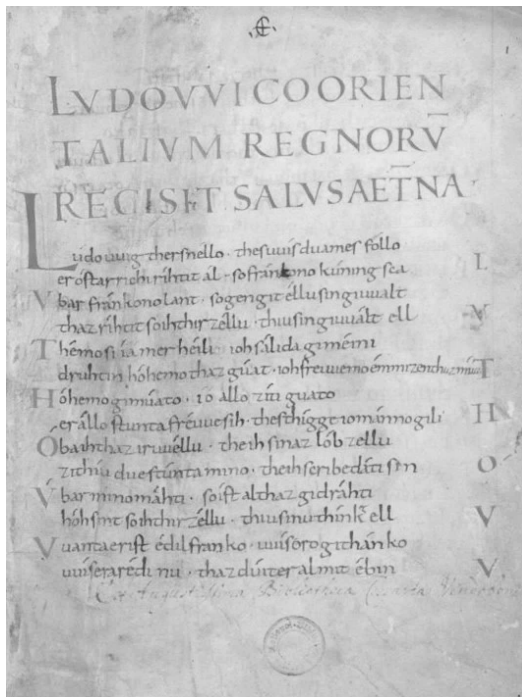 LVDOVVICO ORIEN
TALIVM REGNORV̄
REGI SIT SALVS AET̄NA
Lúdouuig ther snéllo · thes uuísduames fóllo
er óstarrichi ríhtit ál · so fránkono kúning sca L
Vbar fránkono lant · so gengit éllu sin giuualt
thaz ríhtit so ih thir zéllu · thiu sin giuuált ell V
Thémo si íamer héili · ioh sálida giméini
druhtin hóhe mo thaz gúat · ioh fréuue mo émmizen thaz múat T
Hóhe mo gimúato · io allo zíti guato
er állo stúnta fréuue sih · thes thígge io mánnogili H
Óba ih thaz iruuéllu · theih sínaz lób zellu
zi thiu due stúnta mino · theih scribe dáti sin O
Vbar míno máhti · so íst al thaz gidráhti
hóh sint so ih thir zéllu · thiu sinu thínk ell V
Vuanta er ist édil franko · uuísero githánko
uuísera rédinu · thaz dúit er al mit ébin V
Ex Augustissima Bibliotheca